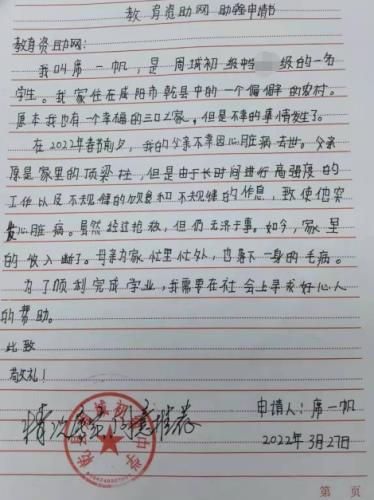 教育资助网 助学申请书
教育资助网:
我叫席一帆,是周城初级中 级的一名
学生。我家住在咸阳市乾县中的一个偏僻的农村。
原本我也有一个幸福的三口之家,但是不幸的事情发生了。
在2022年春节前夕,我的父亲不幸因心脏病去世。父亲
原是家里的顶梁柱,但是由于长时间进行高强度的
工作以及不规律的饮食和不规律的作息,致使他突
发心脏病。虽然经过抢救,但仍无济于事。如今,家里
的收入断了。母亲为家忙里忙外,也落下一身的毛病。
为了顺利完成学业,我需要在社会上寻求好心人
的帮助。
此致
敬礼!
情况属实,同意推荐
申请人:席一帆
2022年3月27日
第 页